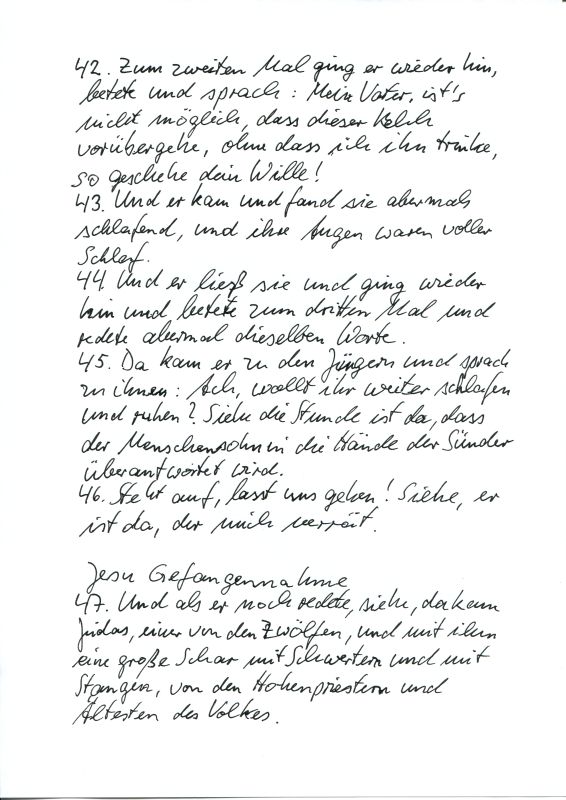 42. Zum zweiten Mal ging er wieder hin,
betete und sprach: Mein Vater, ist's
nicht möglich, dass dieser Kelch
vorübergehe, ohne dass ich ihn trinke,
so geschehe dein Wille!
43. Und er kam und fand sie abermals
schlafend, und ihre Augen waren voller
Schlaf.
44. Und er ließ sie und ging wieder
hin und betete zum dritten Mal und
redete abermal dieselben Worte.
45. Da kam er zu den Jüngern und sprach
zu ihnen: Ach, wollt ihr weiter schlafen
und ruhen? Siehe die Stunde ist da, dass
der Menschensohn in die Hände der Sünder
überantwortet wird.
46. Steht auf, lasst uns gehen! Siehe, er
ist da, der mich verrät.
Jesu Gefangennahme
47. Und als er noch redete, siehe, da kam
Judas, einer von den Zwölfen, und mit ihm
eine große Schar mit Schwertern und mit
Stangen, von den Hohenpriestern und
Ältesten des Volkes.